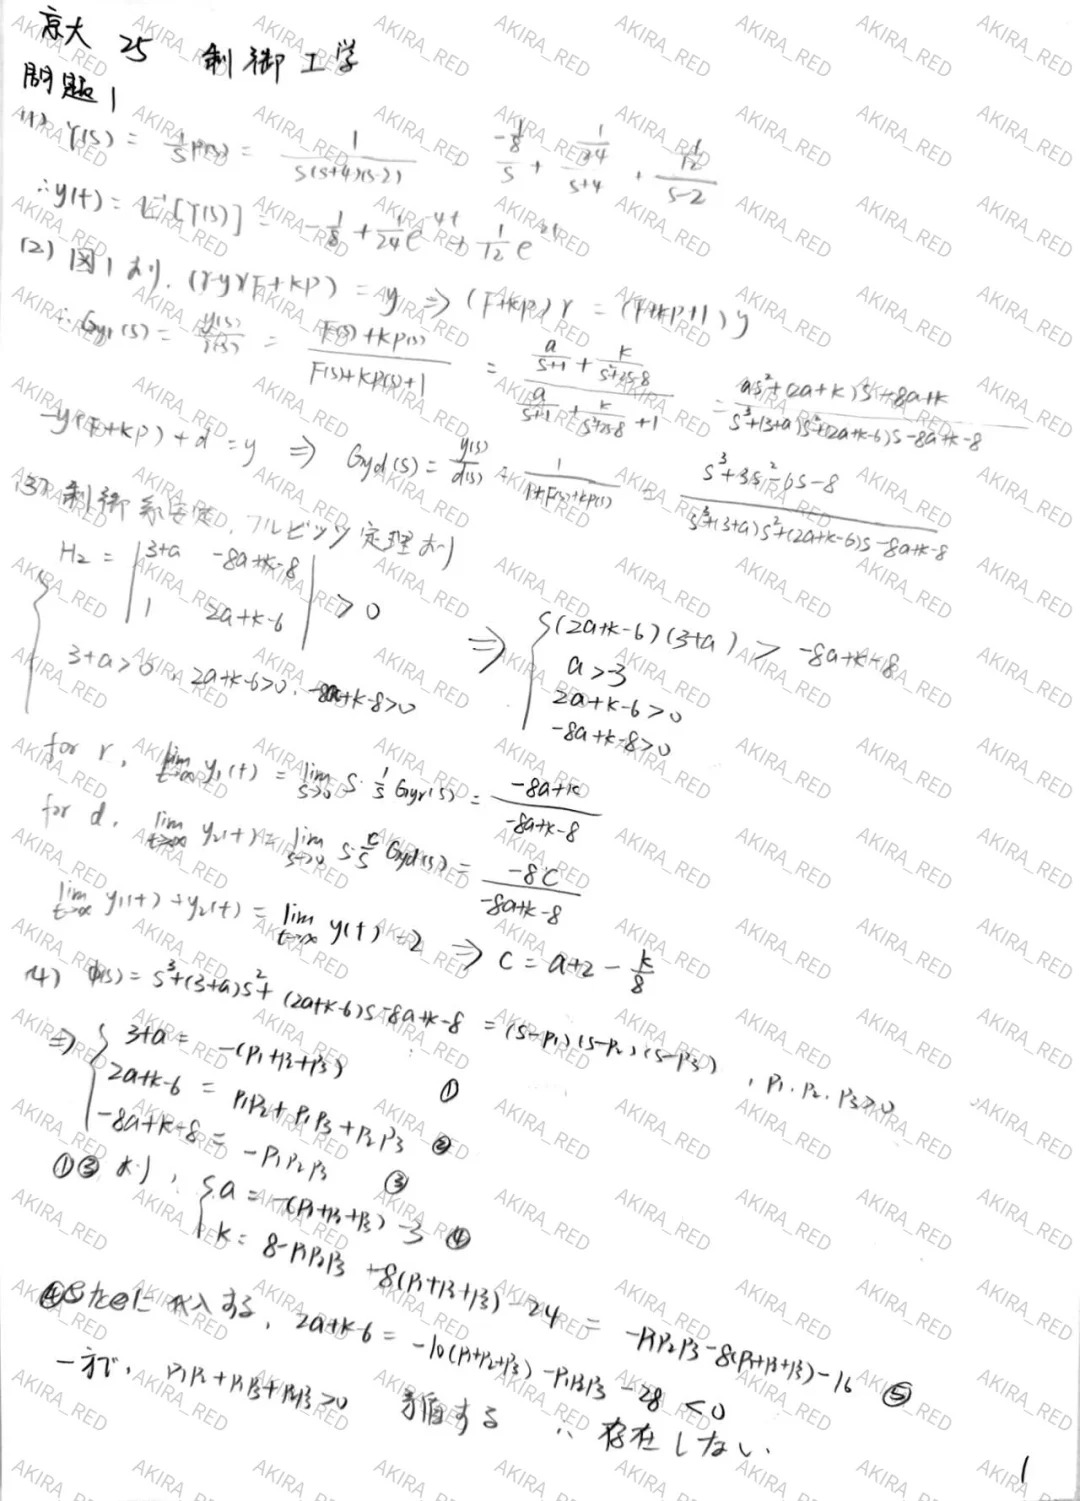 京大 25 制御工学
問題1
(1) Y(s) = 1/s P(s) = 1/(s(s+4)(s-2)) (-1/8)/s + (1/24)/(s+4) + (1/12)/(s-2)
∴ y(t) = L⁻¹[Y(s)] = -1/8 + 1/24 e^{-4t} + 1/12 e^{2t}
(2) 図1より. (r-y)(F+kP) = y ⇒ (F+kP)r = (F+kP+1)y
∴ Gyr(s) = y(s)/r(s) = (F(s)+kP(s))/(F(s)+kP(s)+1) = (a/(s+1) + k/(s²+2s-8))/(a/(s+1) + k/(s²+2s-8) + 1) = (as²+(2a+k)s-8a+k)/(s³+(3+a)s²+(2a+k-6)s-8a+k-8)
-y(F+kP)+d = y ⇒ Gyd(s) = y(s)/d(s) = 1/(1+F(s)+kP(s)) = (s³+3s²-6s-8)/(s³+(3+a)s²+(2a+k-6)s-8a+k-8)
(3) 制御系安定, フルビッツ定理より
H₂ = | 3+a -8a+k-8 | > 0 ⇒ { (2a+k-6)(3+a) > -8a+k-8
| 1 2a+k-6 | a>-3
3+a>0, 2a+k-6>0, -8a+k-8>0 2a+k-6>0
-8a+k-8>0
for r, lim t→∞ y₁(t) = lim s→0 s·1/s Gyr(s) = (-8a+k)/(-8a+k-8)
for d, lim t→∞ y₂(t) = lim s→0 s·c/s Gyd(s) = -8c/(-8a+k-8)
lim t→∞ y₁(t)+y₂(t) = lim t→∞ y(t) = 2 ⇒ c = a+2-k/8
(4) φ(s) = s³+(3+a)s²+(2a+k-6)s-8a+k-8 = (s-p₁)(s-p₂)(s-p₃), p₁.p₂.p₃>0
⇒ { 3+a = -(p₁+p₂+p₃) ①
2a+k-6 = p₁p₂+p₁p₃+p₂p₃ ②
-8a+k-8 = -p₁p₂p₃ ③
①③より, { a = -(p₁+p₂+p₃)-3 ④
k = 8-p₁p₂p₃+8(p₁+p₂+p₃)-24 = -p₁p₂p₃-8(p₁+p₂+p₃)-16 ⑤
④⑤を②に代入する, 2a+k-6 = -10(p₁+p₂+p₃)-p₁p₂p₃-28 <0
一方で, p₁p₂+p₁p₃+p₂p₃>0 矛盾する ∴ 存在しない.
1
AKIRA_RED